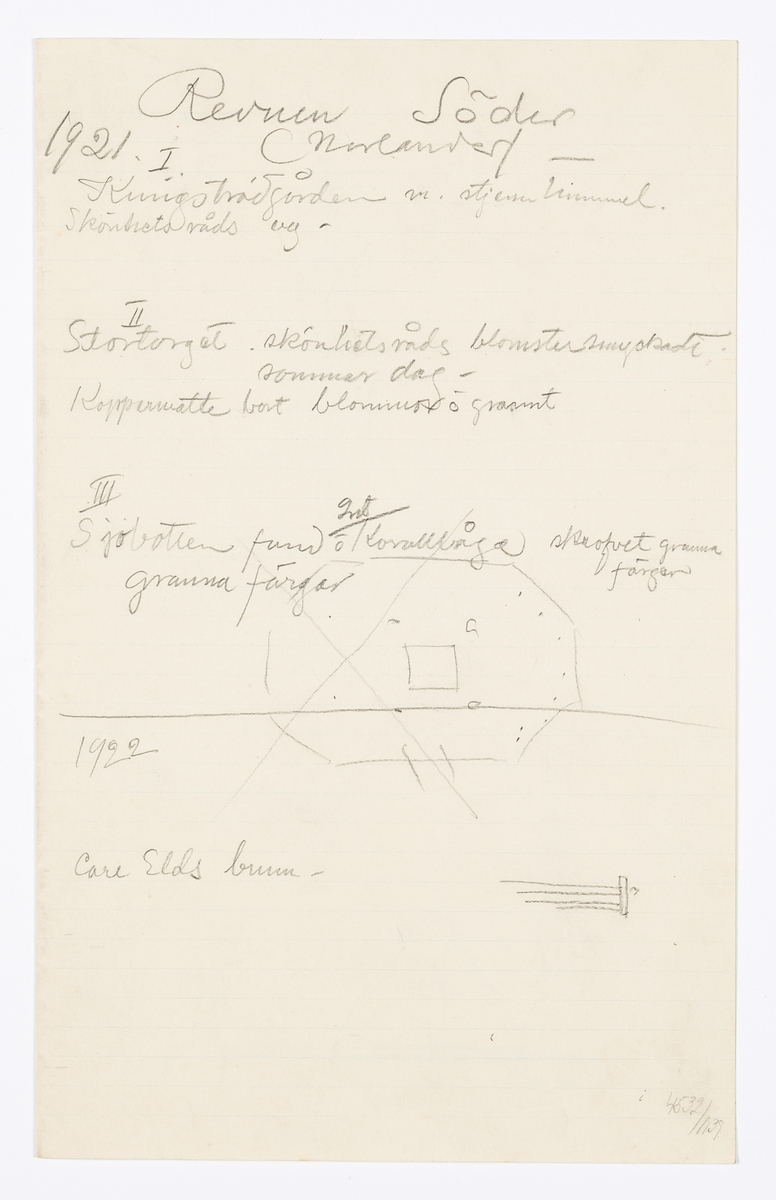 Revuen Söder
1921. (Norlander) —
I
Kungsträdgården m. stjernhimmel.
Skönhetsråds väg -
II
Stortorget . skönhetsråds blomstersmyckadt,
sommar dag -
Koppermatte bort blommor o grannt
III
Sjöbotten fund o Korallsåga skrofvet granna
granna färgar färger
1922
Care Elds brunn -
4532/139